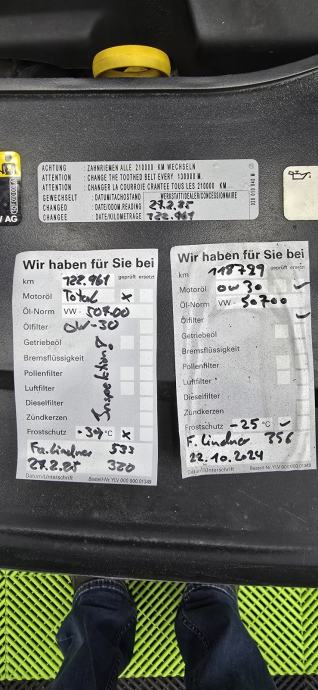 ACHTUNG : ZAHNRIEMEN ALLE 210000 KM WECHSELN
ATTENTION : CHANGE THE TOOTHED BELT EVERY 130000 M
ATTENTION : CHANGER LA COURROIE CRANTEE TOUS LES 210000 KM
GEWECHSELT : DATUM/TACHOSTAND WERKSTATT/DEALER/CONCESSIONNAIRE
CHANGED : DATE/ODOM READING 27.2.25
CHANGEE : DATE/KILOMETRAGE 122.961
AG
Wir haben für Sie bei
km 122.961 geprüft ersetzt
Motoröl Total x
Öl-Norm VW - 50700
Ölfilter 0W-30
Getriebeöl
Bremsflüssigkeit
Pollenfilter
Luftfilter
Dieselfilter
Zündkerzen
Inspektion!
Frostschutz -39 °C x
Fa. Lindner 533
27.2.25 320
Datum/Unterschrift Bestell-Nr. YLV 000 900 01349
Wir haben für Sie bei
km 118739 geprüft ersetzt
Motoröl 0W30 ✓
Öl-Norm VW - 50700
Ölfilter ✓
Getriebeöl
Bremsflüssigkeit
Pollenfilter
Luftfilter
Dieselfilter
Zündkerzen
Frostschutz -25 °C ✓
F. Lindner 356
22.10.2024
Datum/Unterschrift Bestell-Nr. YLV 000 900 01349